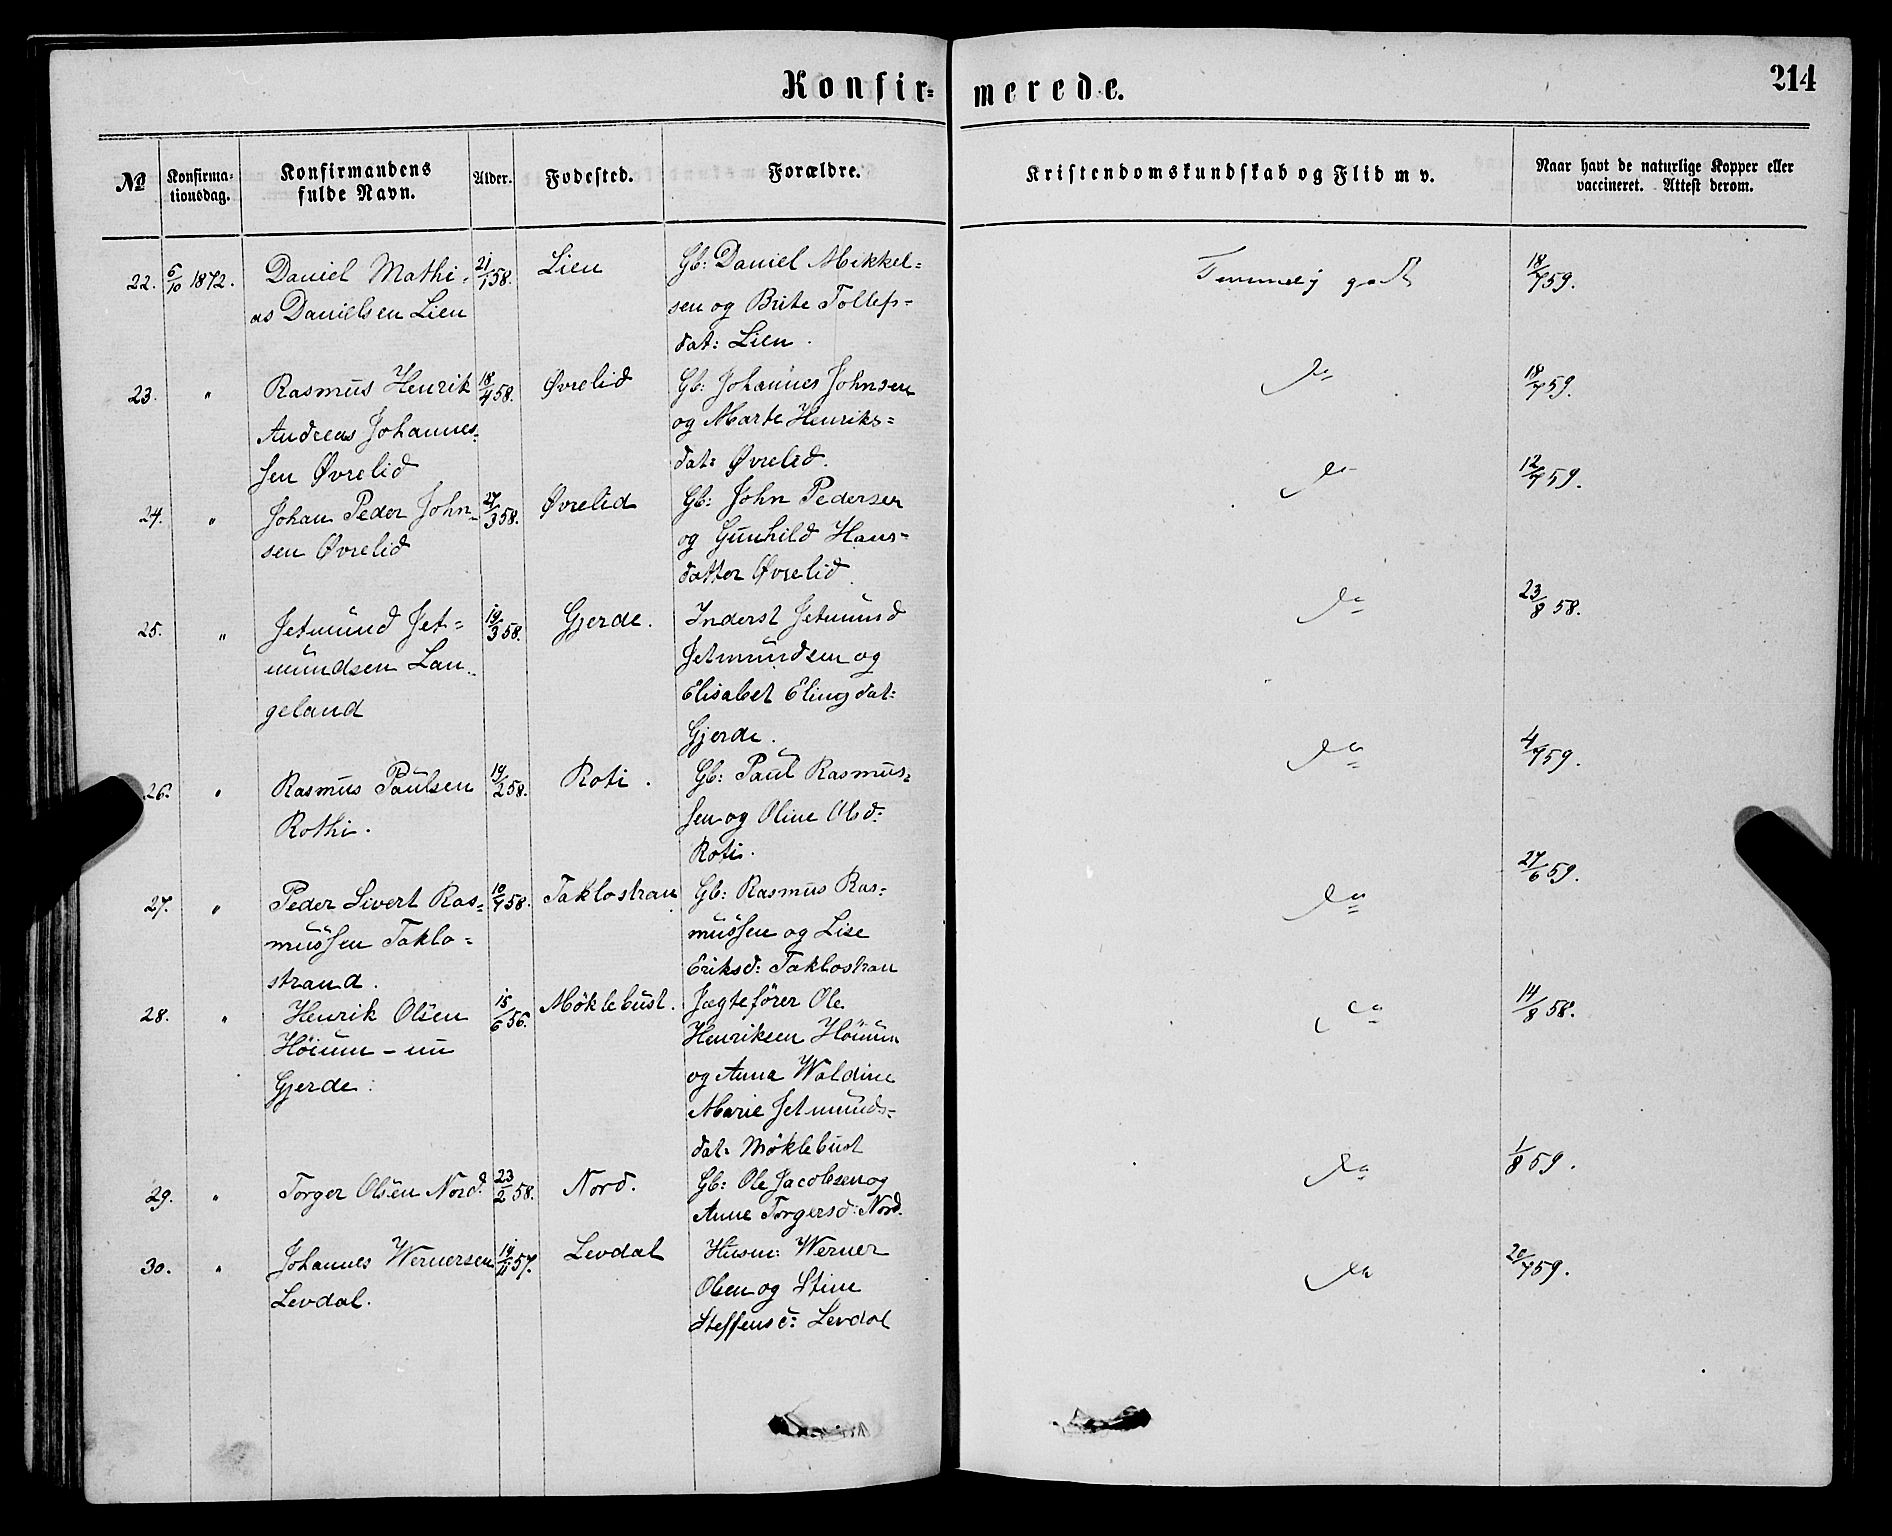 Konfir=
merede.
214
No
Konfirma-
tionsdag.
Konfirmandens
fulde Navn.
Alder.
Fødested.
Forældre.
Kristendomskundskab og Flid m v.
Naar havt de naturlige Kopper eller
vaccineret. Attest derom.
22. 6/10 1872. Daniel Mathi- 21/1 58. Lien Gb: Daniel Mikkel= Temmelig godt 18/7 59.
as Danielsen Lien sen og Brite Tollefs=
dat: Lien.
23. " Rasmus Henrik 18/4 58. Øvrelid Gb: Johannes Johnsen do 18/7 59.
Andreas Johannes- og Marte Henriks=
sen Øvrelid dat: Øvrelid.
24. " Johan Peder John- 27/3 58. Øvrelid Gb: John Pedersen do 12/7 59.
sen Øvrelid og Gunhild Hans=
datter Øvrelid.
25. " Jetmund Jet= 19/3 58. Gjerde. Inderst Jetmund do 23/8 58.
mundsen Lan- Jetmundsen og
geland Elisabet Elingsdat:
Gjerde.
26. " Rasmus Paulsen 19/2 58. Roti. Gb: Paul Rasmus= do 4/7 59.
Rothi. sen og Oline Olsd:
Roti.
27. " Peder Sivert Ras= 10/7 58. Taklostran Gb: Rasmus Ras= do 27/6 59.
mussen Taklo= mussen og Lise
strand. Eriksd: Taklostran
28. " Henrik Olsen 15/6 56. Möklebust. Jægtefører Ole do 14/8 58.
Höium - nu Henriksen Höium
Gjerde: og Anna Waldine
Marie Jetmunds=
dat: Möklebust
29. " Torger Olsen Nord. 23/2 58. Nord. Gb: Ole Jacobsen og do 1/8 59.
Anne Torgersd: Nord.
30. " Johannes Wernersen 19/11 57. Levdal Husm: Werner do 20/7 59.
Levdal. Olsen og Stine
Steffensd: Levdal